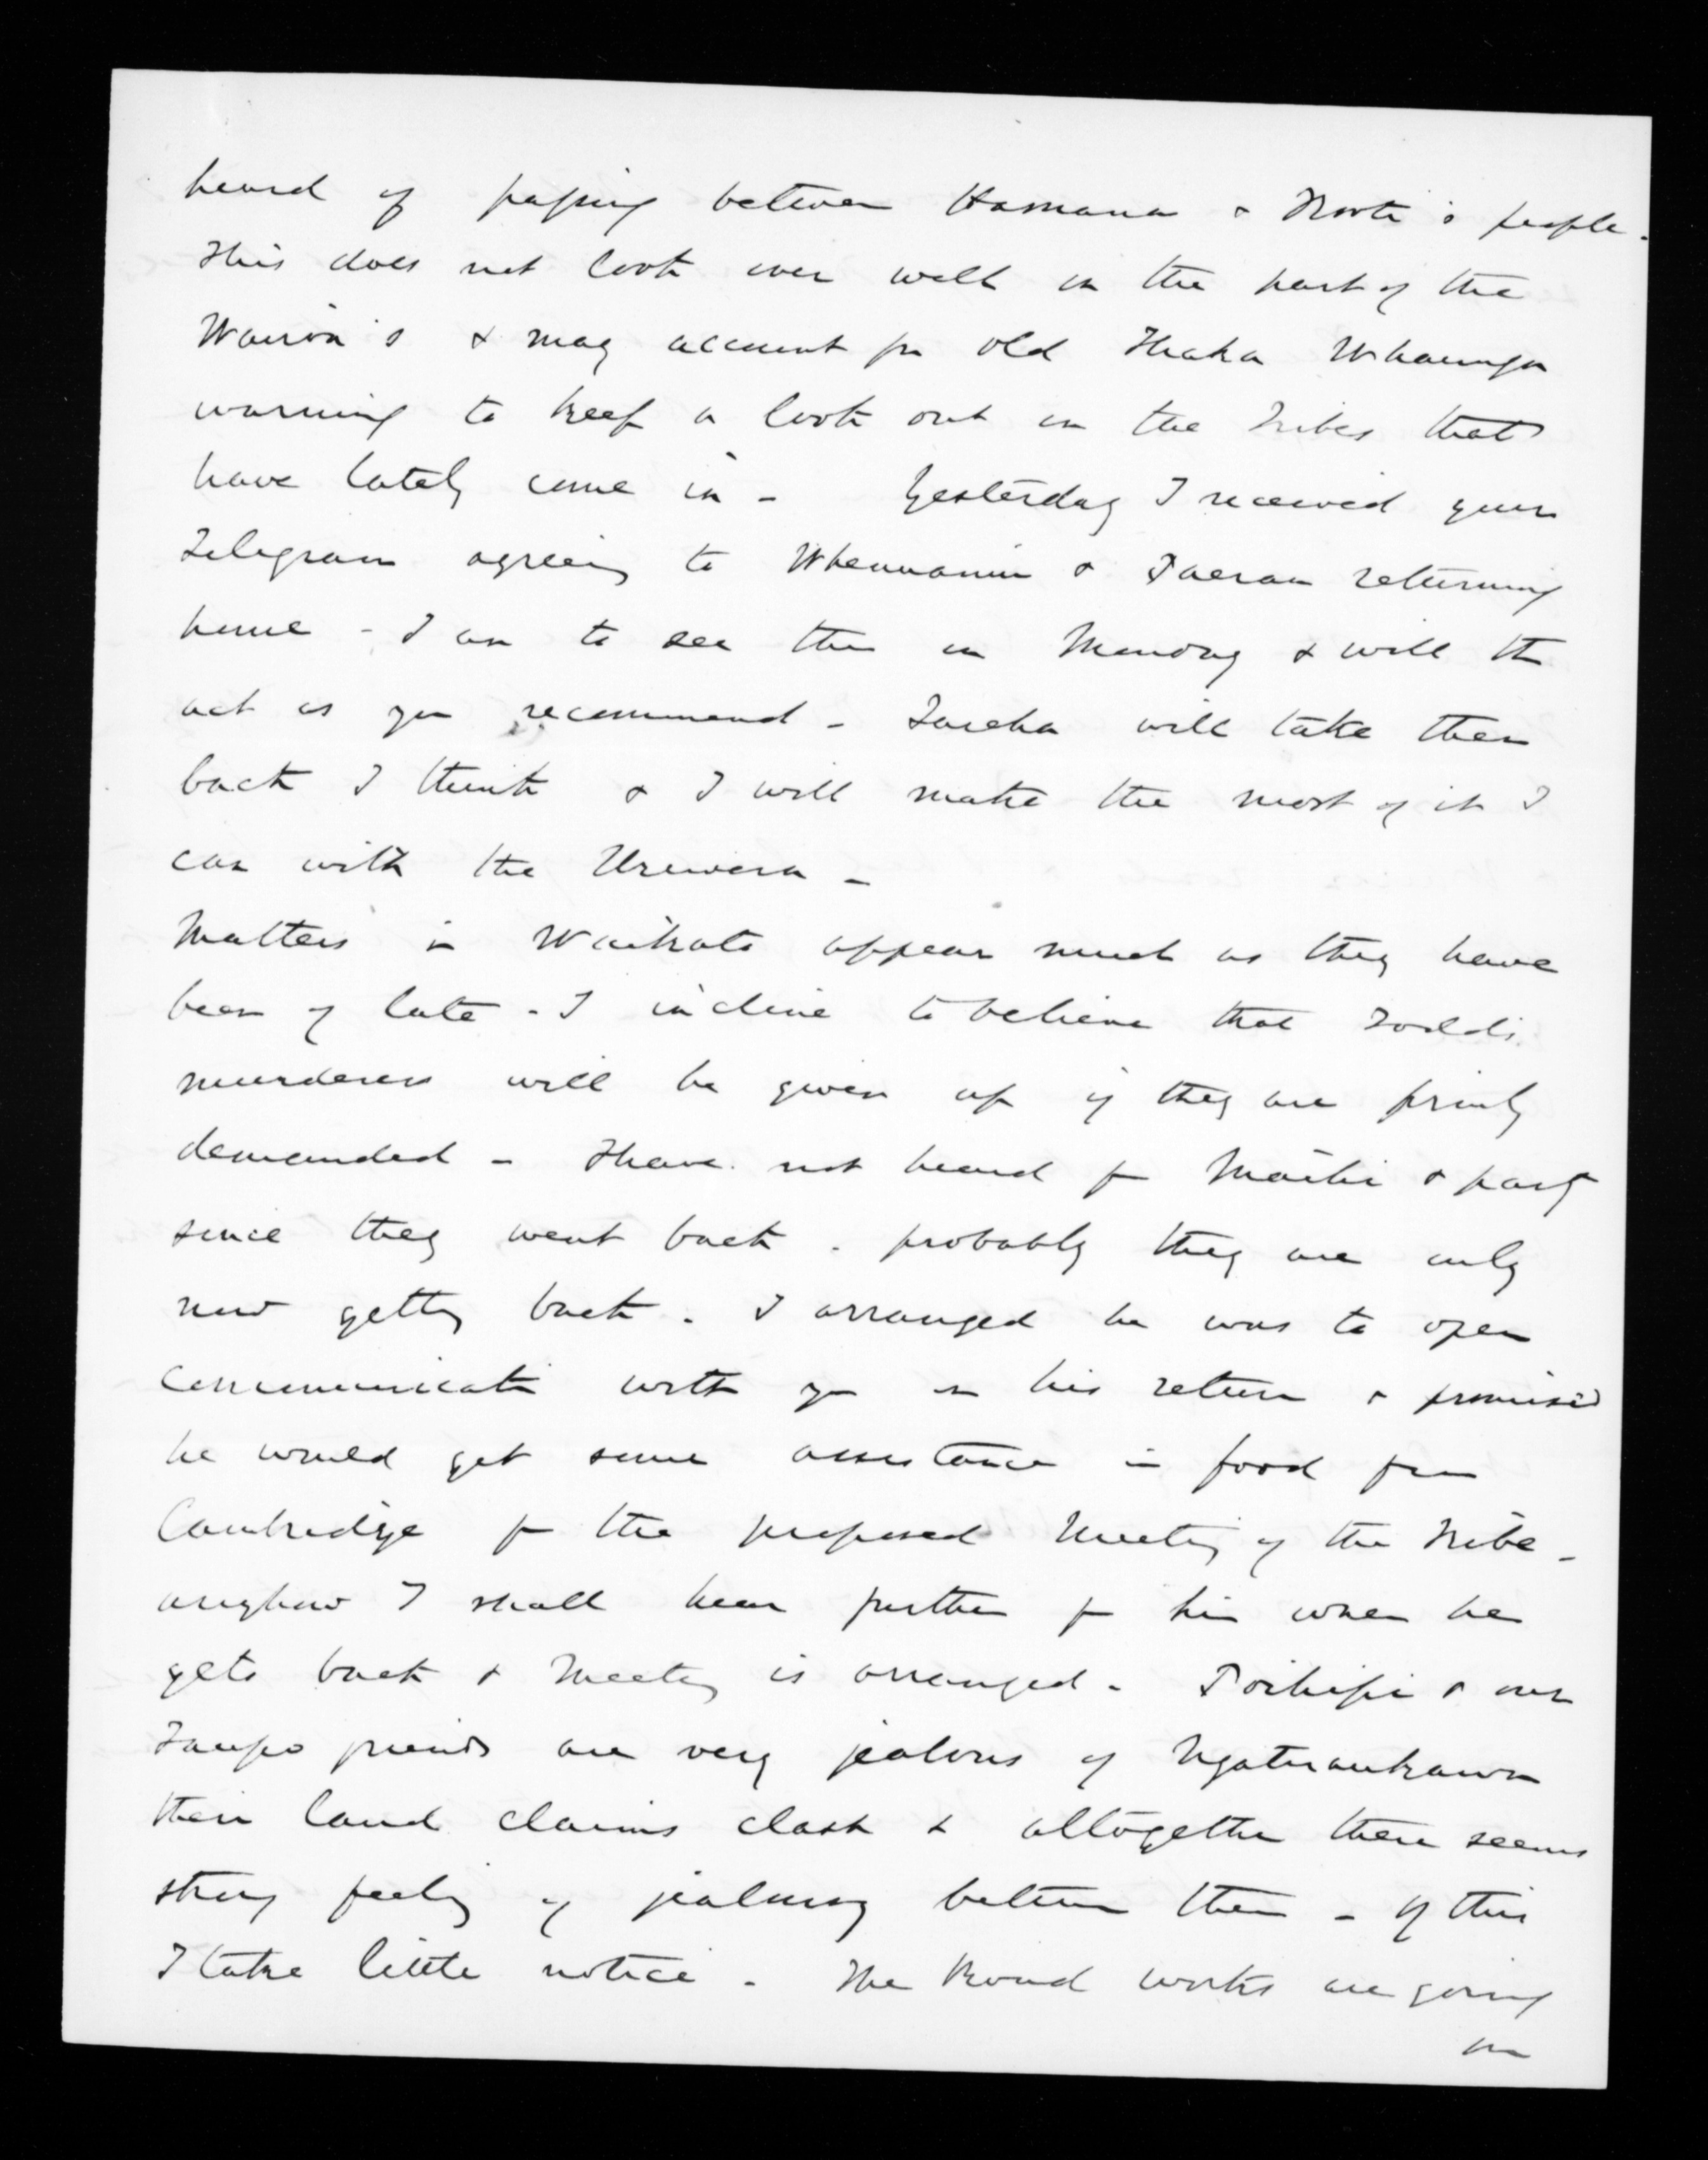 heard of passing between Hamana & Kooti's people.
This does not look over well on the part of the
Wairoa's & may account for old Ihaka Whaanga
warning to keep a look out on the Tribes that
have lately come in - Yesterday I received your
Telegram agreeing to Whenuanui & Paerau returning
home - I am to see them on Monday & will then
act as you recommend - Tareha will take them
back I think & I will make the most of it I
can with the Urewera -
Matters in Waikato appear much as they have
been of late - I incline to believe that Todd's
murderers will be given up if they are firmly
demanded - I have not heard from Maihi & party
since they went back - probably they are only
now getting back. I arranged he was to open
communication with you on his return & promised
he would get some assistance in food from
Cambridge for the proposed Meeting of the Tribe -
anyhow I shall hear further from him when he
gets back & Meeting is arranged - Poihipi & our
Taupo friends are very jealous of Ngatiraukawa
their land claims clash & altogether there seems
strong feeling of jealousy between them - Of this
I take little notice - The Road works are going
on